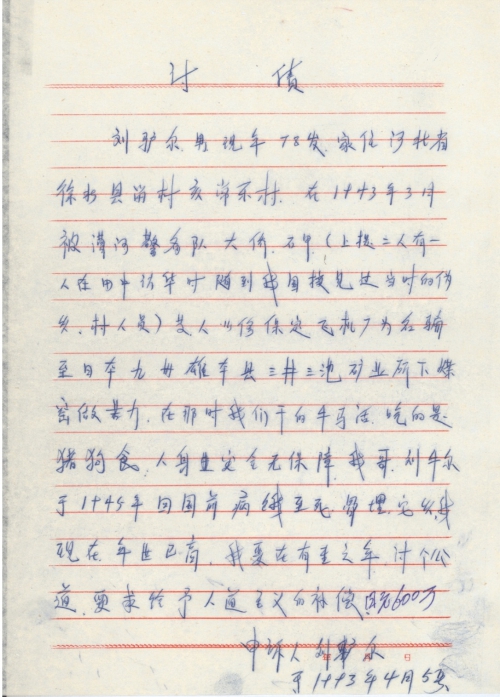 讨 债
刘驴尔,男现年78岁,家住河北省
徐水县留村亥 村.在1943年3月
被漕河警务队大桥、石甲(上提二人有一
人在田中访华时随到我国接见过当时的伪
乡、村人员)受人 修保定飞机厂为名骗
至日本九州雄本县三井三池矿业所下煤
窑做苦力,在那时我们干的牛马活,吃的是
猪狗食,人身安全无保障,我哥,刘牛尔
于1945年回国前病饿至死,骨埋 我
现在年世已高,我要在有生之年,讨个公
道,要求给予人道主义的补偿 600万
申诉人 刘驴尔
于1993年4月5